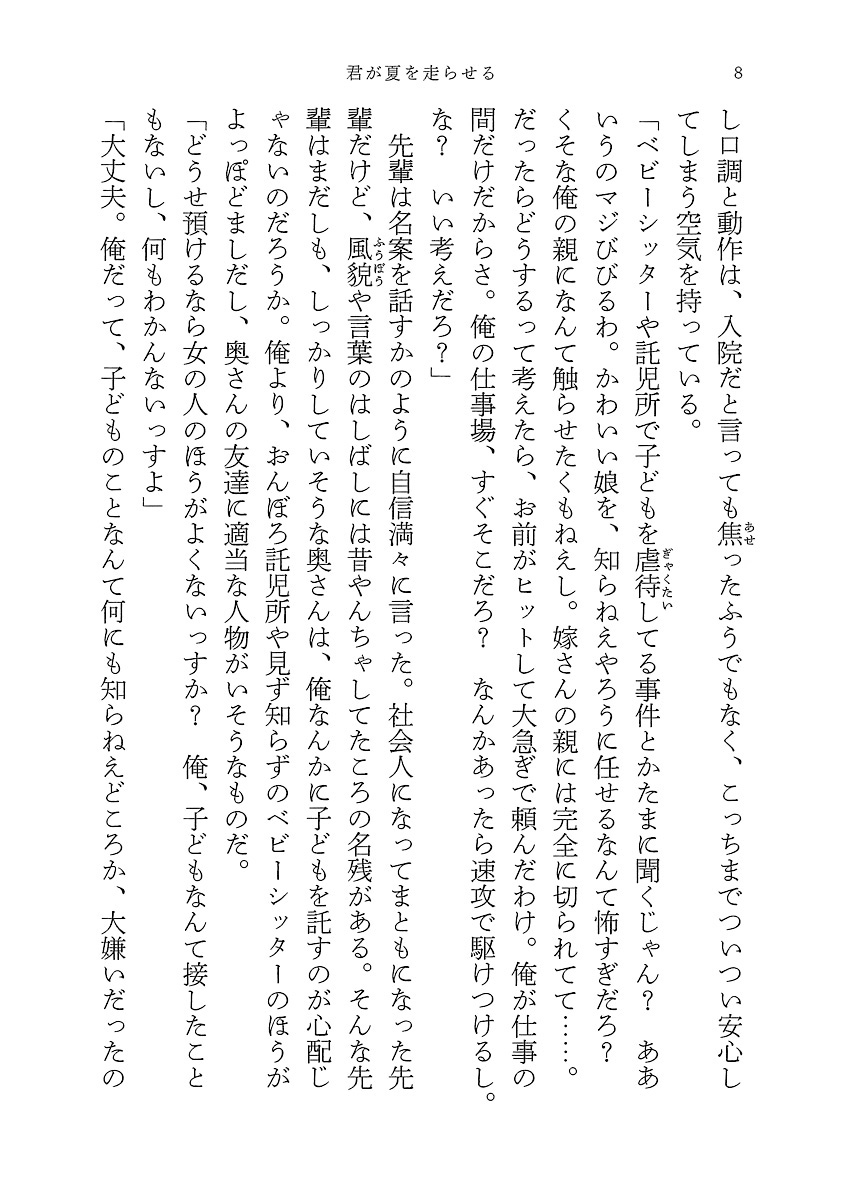 君が夏を走らせる
8
し口調と動作は、入院だと言っても焦ったふうでもなく、こっちまでついつい安心し
てしまう空気を持っている。
「ベビーシッターや託児所で子どもを虐待してる事件とかたまに聞くじゃん？　ああ
いうのマジびびるわ。かわいい娘を、知らねえやろうに任せるなんて怖すぎだろ？
くそな俺の親になんて触らせたくもねえし。嫁さんの親には完全に切られてて……。
だったらどうするって考えたら、お前がヒットして大急ぎで頼んだわけ。俺が仕事の
間だけだからさ。俺の仕事場、すぐそこだろ？　なんかあったら速攻で駆けつけるし。
な？　いい考えだろ？」
　先輩は名案を話すかのように自信満々に言った。社会人になってまともになった先
輩だけど、風貌や言葉のはしばしには昔やんちゃしてたころの名残がある。そんな先
輩はまだしも、しっかりしていそうな奥さんは、俺なんかに子どもを託すのが心配じ
ゃないのだろうか。俺より、おんぼろ託児所や見ず知らずのベビーシッターのほうが
よっぽどましだし、奥さんの友達に適当な人物がいそうなものだ。
「どうせ預けるなら女の人のほうがよくないっすか？　俺、子どもなんて接したこと
もないし、何もわかんないっすよ」
「大丈夫。俺だって、子どものことなんて何にも知らねえどころか、大嫌いだったの